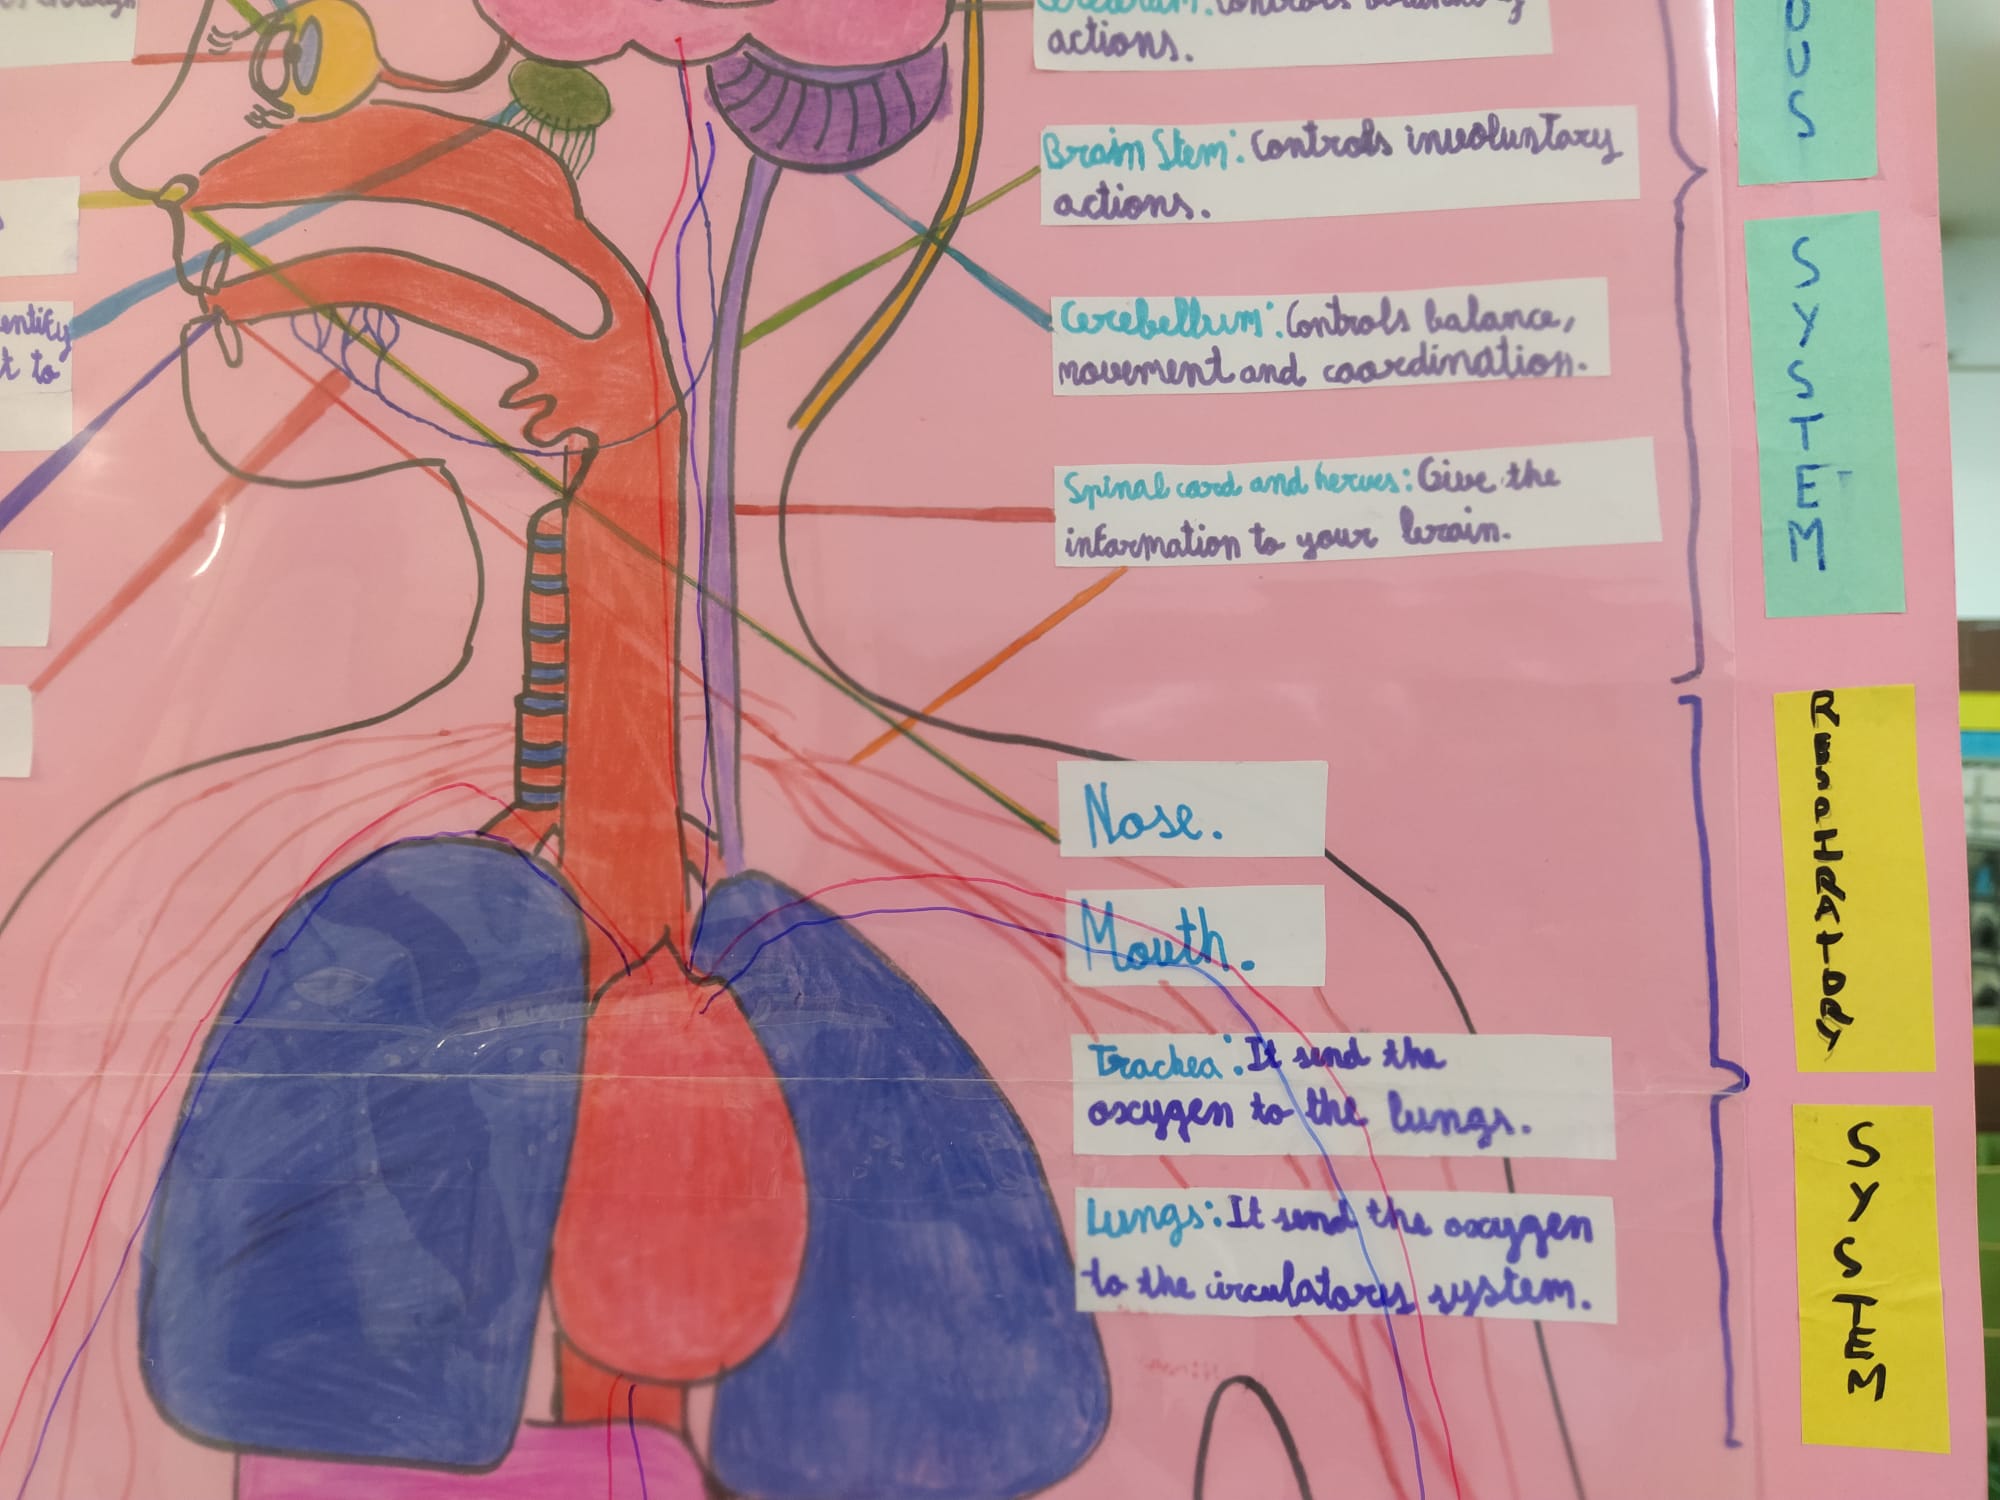 actions.
Brain Stem: Controls involuntary
actions.
Cerebellum: Controls balance,
movement and coordination.
Spinal cord and nerves: Give the
information to your brain.
Nose.
Mouth.
Trachea: It send the
oxygen to the lungs.
Lungs: It send the oxygen
to the circulatory system.
OUS
SYSTEM
RESPHRATORY
SYSTEM
entify
t to